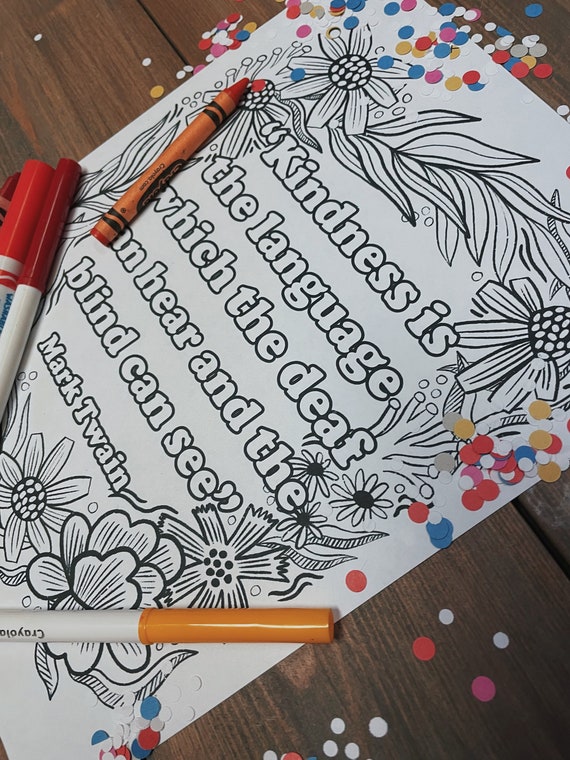 “Kindness is
the language
which the deaf
can hear and the
blind can see”
Mark Twain
Crayola
Crayola